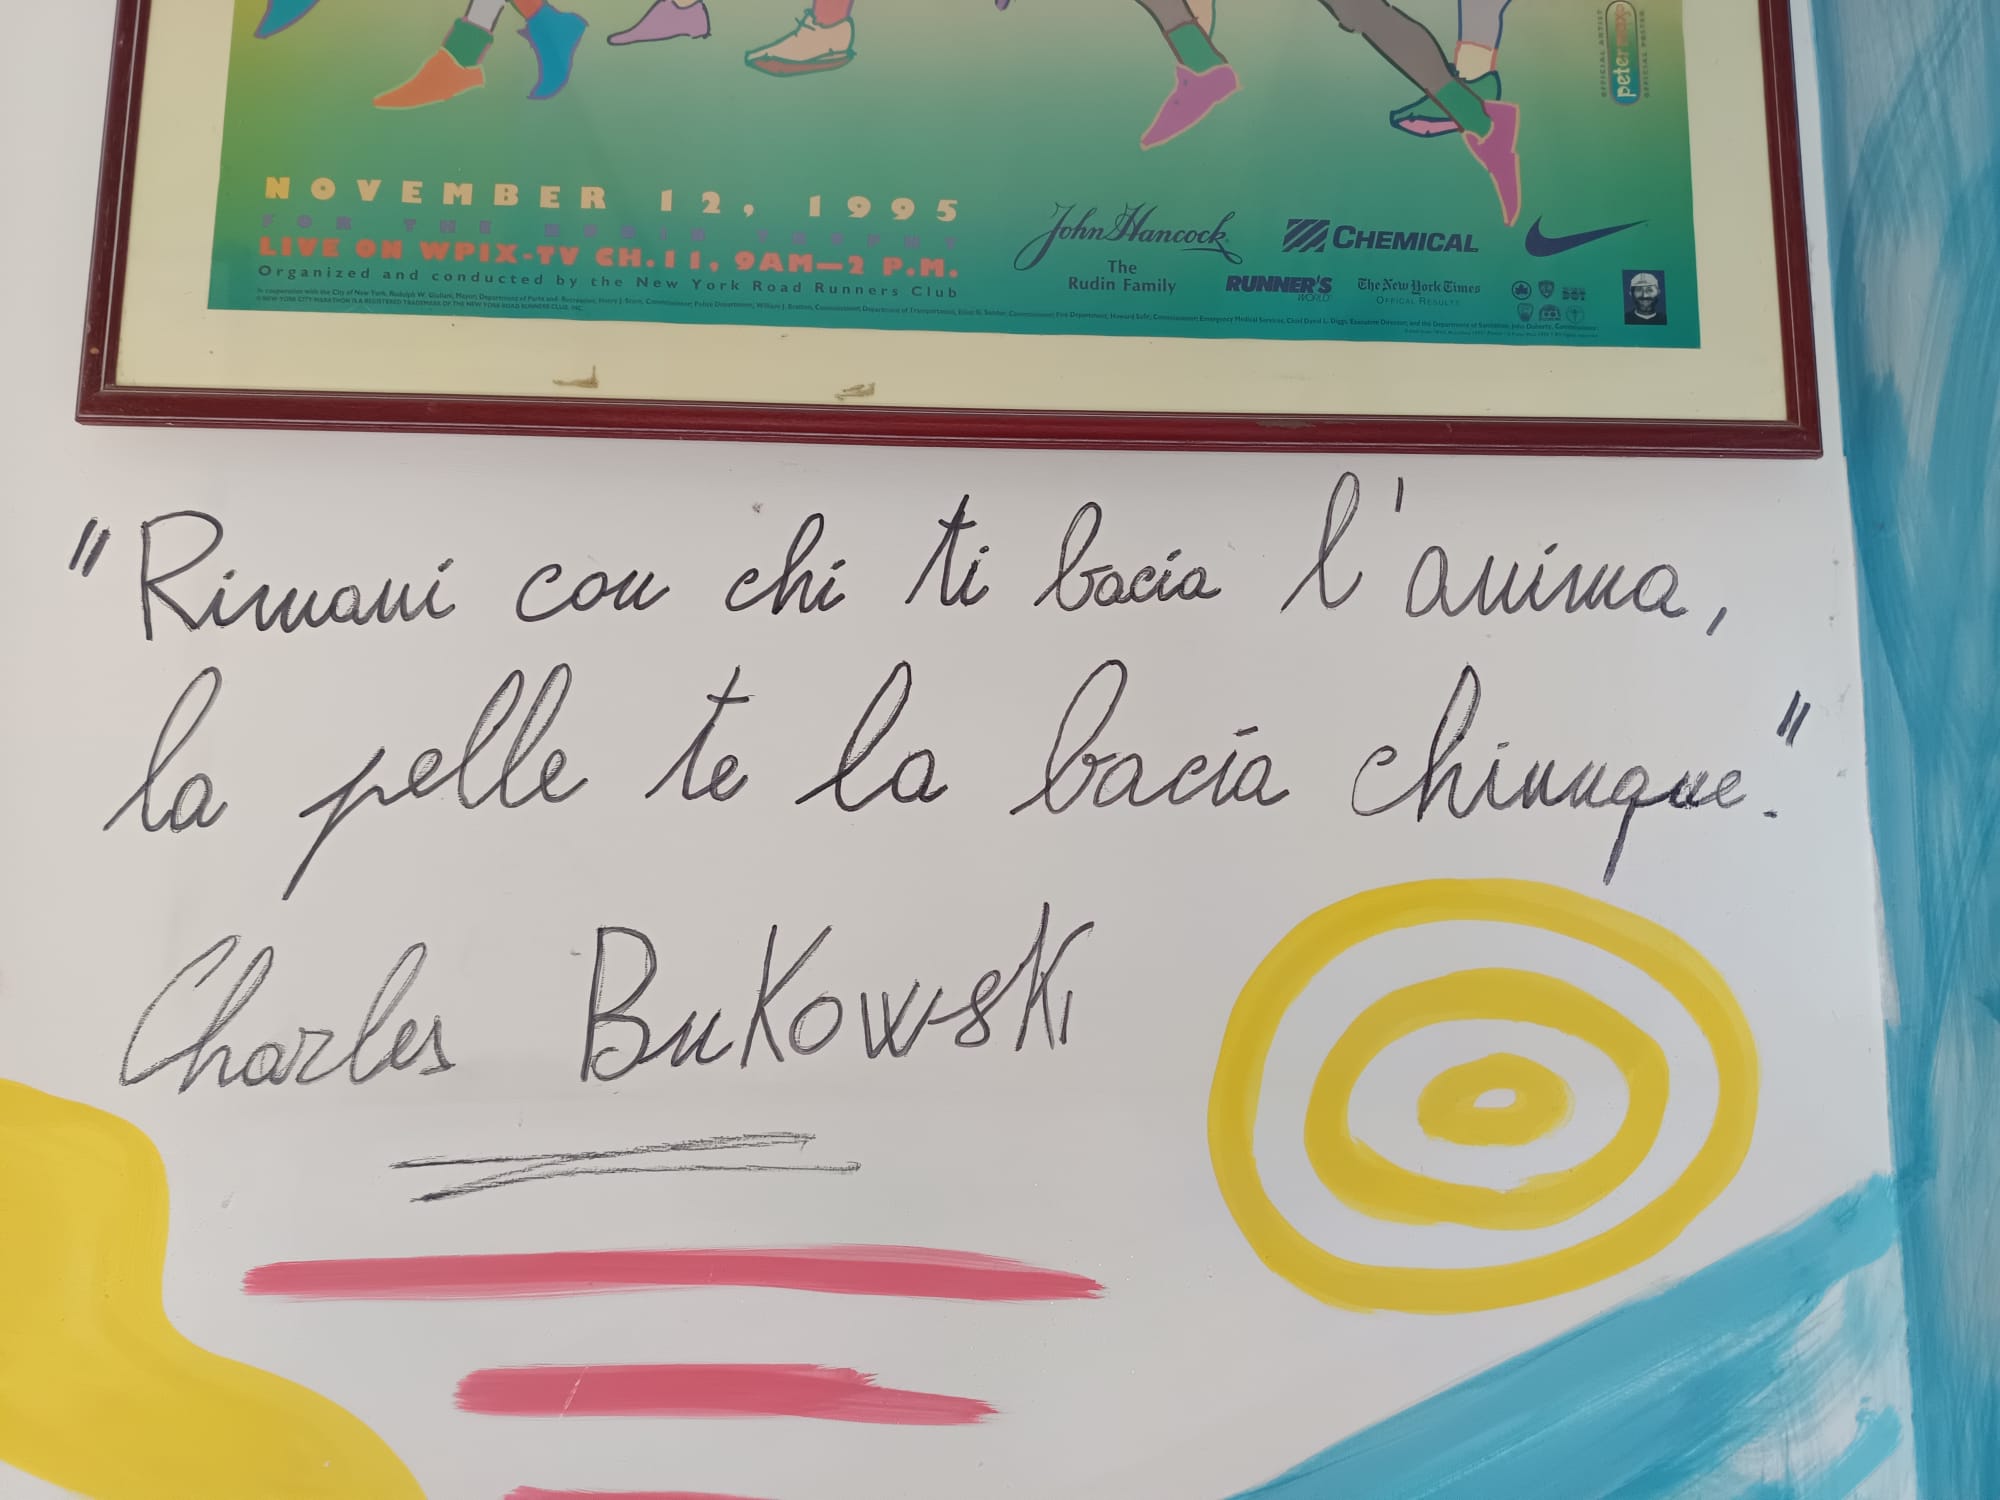 OFFICIAL ARTIST
peter max
OFFICIAL POSTER
NOVEMBER 12, 1995
FOR THE RUDIN TROPHY
LIVE ON WPIX-TV CH.11, 9AM—2 P.M.
Organized and conducted by the New York Road Runners Club
John Hancock
CHEMICAL
The
Rudin Family
RUNNER'S
WORLD
The New York Times
OFFICIAL RESULTS
"Rimani con chi ti bacia l'anima,
la pelle te la bacia chiunque."
Charles BuKowsKi